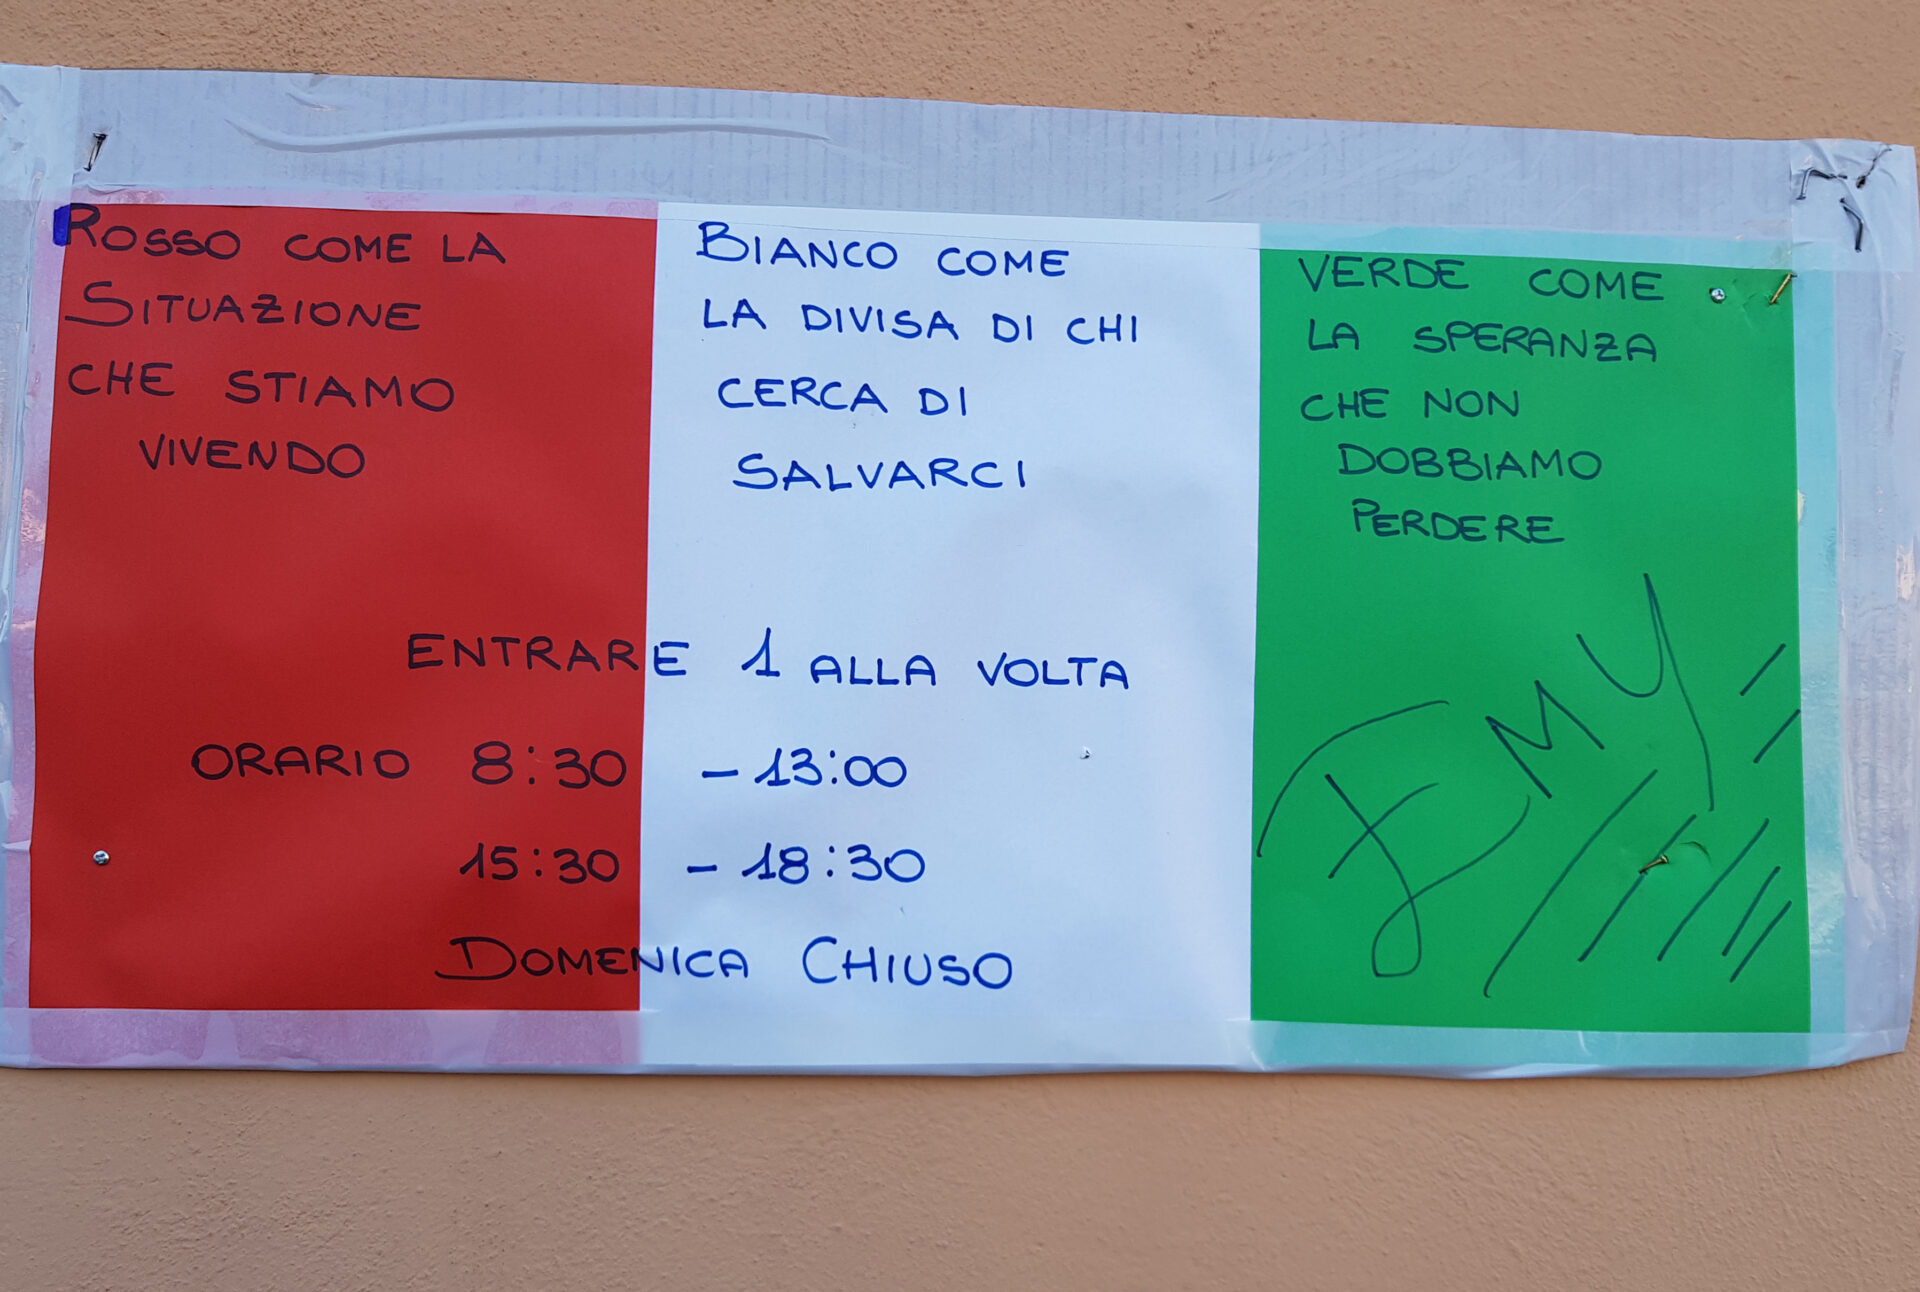 ROSSO COME LA
SITUAZIONE
CHE STIAMO
VIVENDO
BIANCO COME
LA DIVISA DI CHI
CERCA DI
SALVARCI
VERDE COME
LA SPERANZA
CHE NON
DOBBIAMO
PERDERE
ENTRARE 1 ALLA VOLTA
ORARIO 8:30 - 13:00
15:30 - 18:30
DOMENICA CHIUSO
EMY